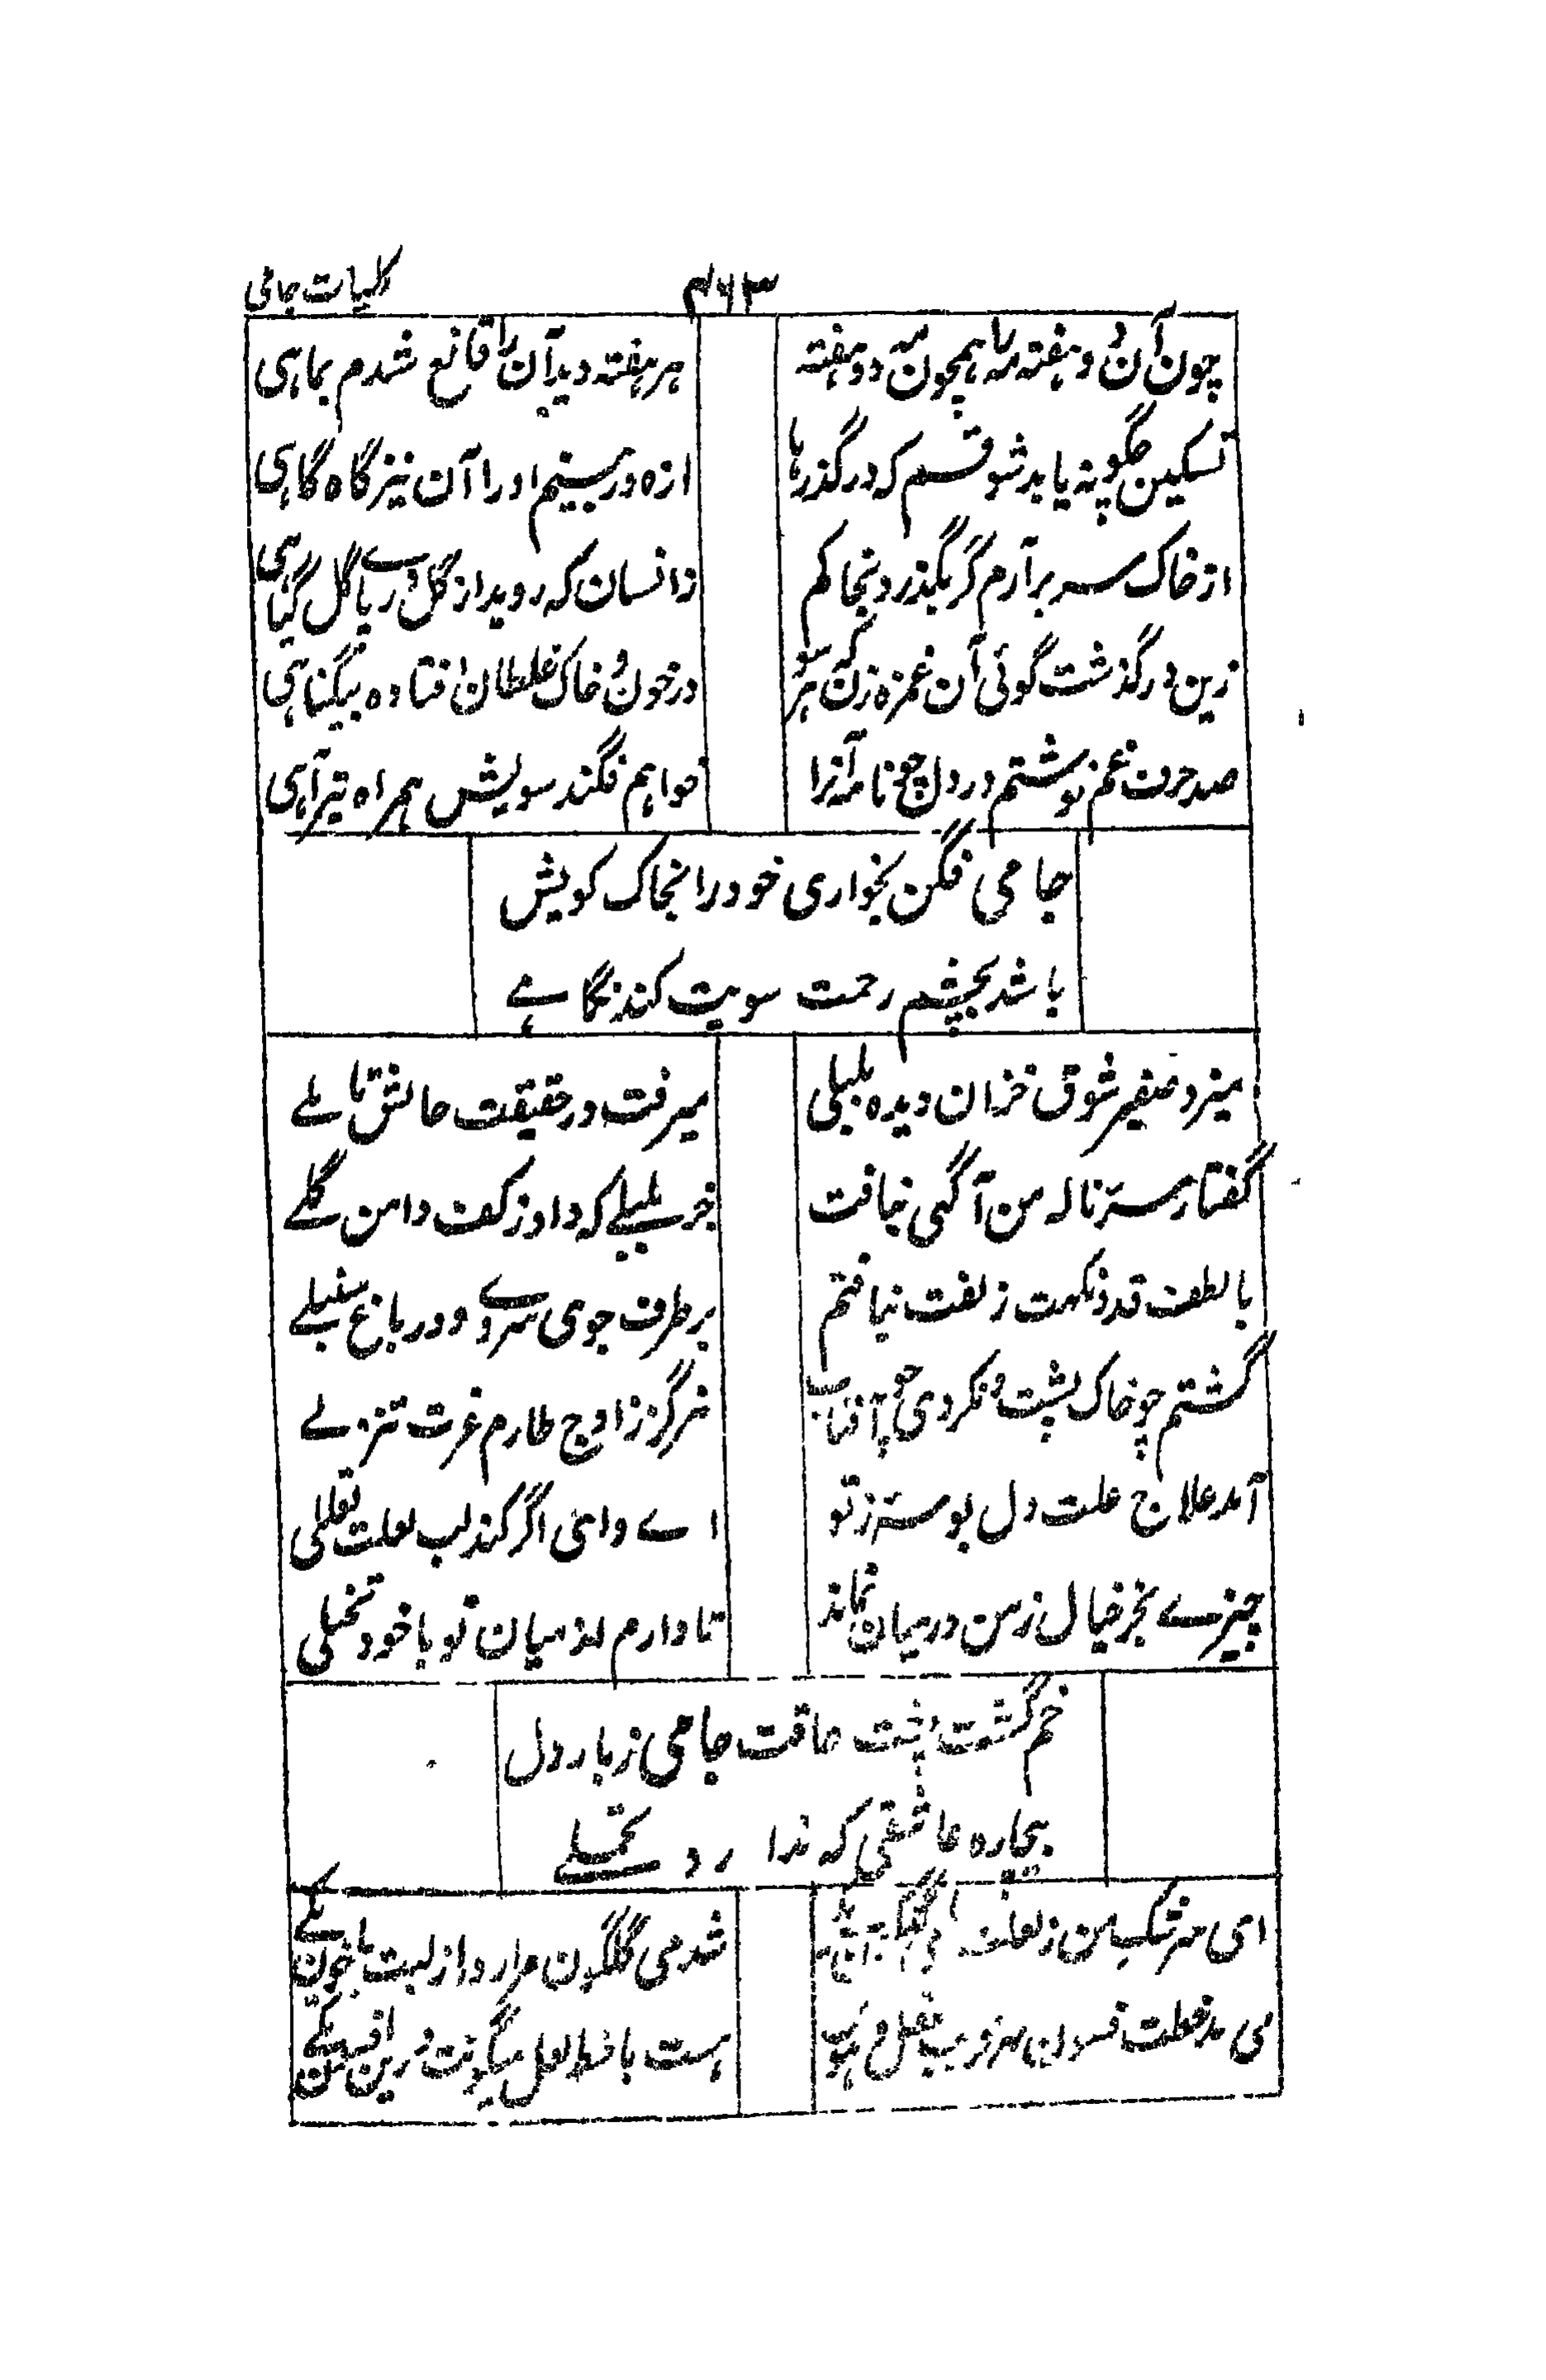 کلیات جامی
۴۶۳
چون آن دو هفته مه را همچون مه دو هفته
هر هفته دیدآن را قانع شدم بماهی
تسکین چگونه یابد شوقم که در گذرها
از دور بینم او را آن نیز گاه گاهی
از خاک سر برآرم گر بگذرد بخاکم
زانسان که روید از گل در پای گل گیاهی
زین در گذشت گوئی آن غمزه زن که هر سو
در خون و خاک غلطان افتاده بیگناهی
صد حرف غم نوشتم در دل چو نامه آنرا
خواهم فگند سویش همراه تیر آهی
جامی فگن بخواری خود را بخاک کویش
باشد بچشم رحمت سویت کند نگاهے
میزد صفیر شوق خزان دیده بلبلی
میرفت در حقیقت حالش تاملے
گفتا ز سر ناله من آگهی نیافت
جز بلبلے که داد ز کف دامن گلے
با لطف قد و نکهت زلفت نیافتم
بر طرف جوی سروے و در باغ سنبلے
گشتم چو خاک پست و نکردی چو آفتاب
هرگز ز اوج طارم عزت تنزلے
آمد علاج علت دل بوسه ز تو
اے وای اگر کند لب لعلت تعللی
چیزے بجز خیال ز من در میان نماند
تا دارم از میان تو با خود تخیلی
خم گشت پشت طاقت جامی ز بار دل
بیچاره عاشقی که ندارد تحملے
ای ز مشکین زلف
شد می گلگون مرا از لبت با خون یکے
می فسون عقل و هوش
هست با خط لعل میگونت در این افسون یکے